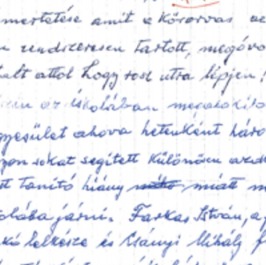 mertetése amit a Körorvas az
rendszeresen tartott, megóvo
attol hogy rosz utra lépjen!
az iskolában megalakito
gyesület ahova hetenként háro
sokat segitett különösen azd
tt tanitó hiány miatt m
olába járni. Farkas István, a
lelkésze és Csányi Mihály f